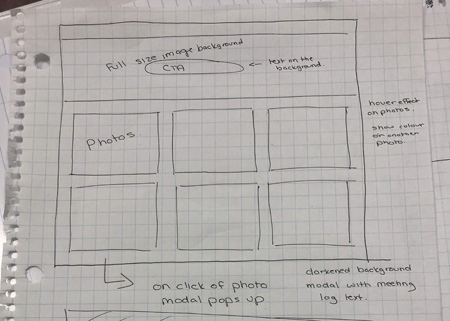 Full size image background
CTA
← text on the
background.
Photos
hover effect
on photos.
show colour
or another
photo.
on click of photo
modal pops up
darkened background
modal with meeting
log text.